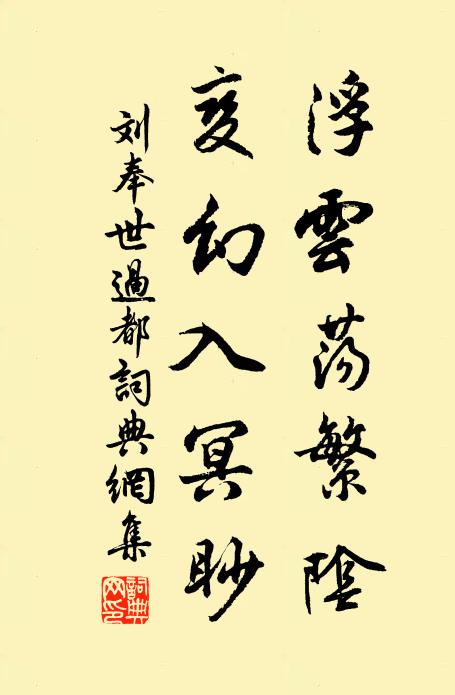 浮雲蕩繁陰
变幻入冥眇
刘奉世過都詞典網集
詞典網印